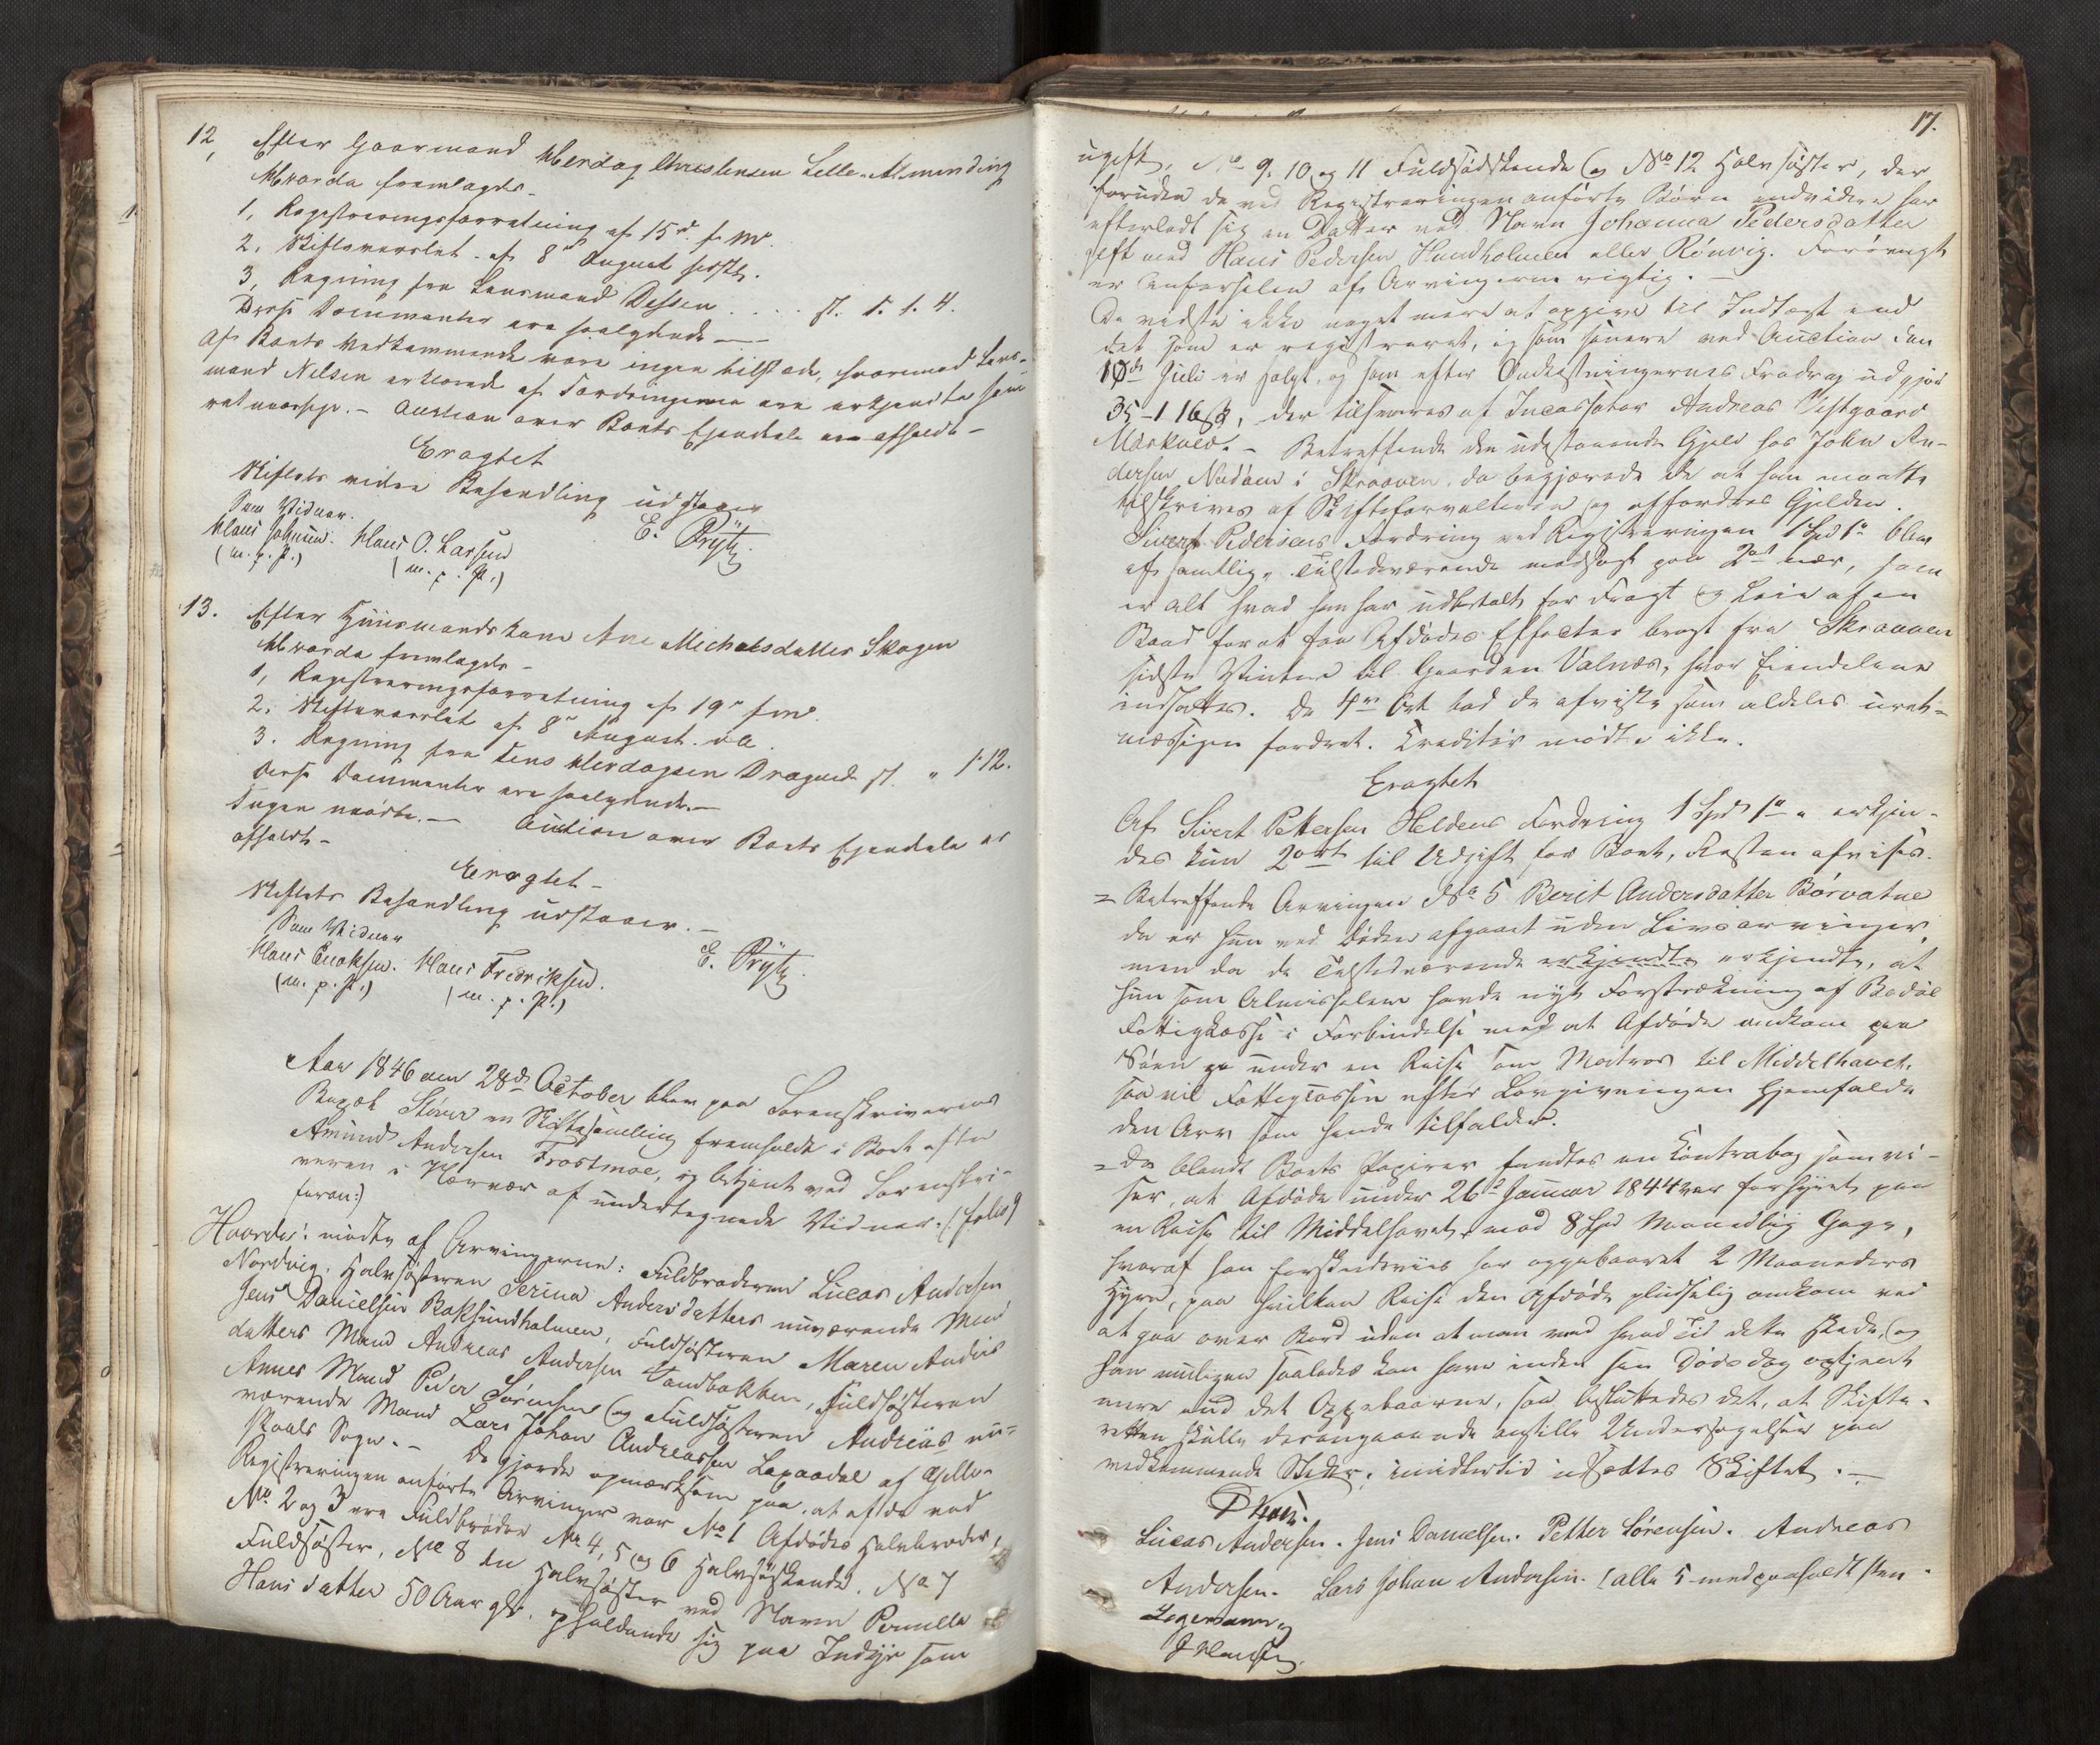 12, Efter Gaarmand Meidag Christensen Lille-Almending
Meraada fremlagdes
1, Registreringsforretning af 15de f. M.
2, Skiftevarslet af 8de August sidstl.
3, Regning fra Lensmand Dessen . . . . st. 5. 1. 4.
Disse Documenter ere saalydende —
Af Boets Vedkommende vare ingen tilstede, hvorimod Lens-
mand Nelsen erklærede at Fordringerne ere erkjendte som
retmæssige. - Auction over Boets Eiendele er afholdt -
Eragtet
Skiftets videre Behandling udstaaer
Som Vidner. E. Prytz
Hans Johnsen. Hans O. Larsen
(m. p. P.) (m. p. P.)
13. Efter Huusmandskone Ane Michelsdatter Skogen
Meraada fremlagdes -
1, Registreringsforretning af 19de f. M.
2. Skiftevarslet af 8de August d. A.
3. Regning fra Jens Meidagsen st. " 1. 12.
Disse Documenter ere saalydende. —
Ingen mødte. — Auction over Boets Eiendele er
afholdt -
Eragtet -
Skiftets Behandling udstaaer. -
Som Vidner E. Prytz.
Hans Enoksen. Hans Fredriksen.
(m. p. P.) (m. p. P.)
Aar 1846 den 28de October blev paa Sorenskriverens
Støver en Skiftesamling fremholdt i Boet efter
Amund Andersen Frostmoe, og betjent ved Sorenskri-
veren i Nærvær af undertegnede Vidner. (: folio 9
foran :)
Hvorda: mødte af Arvingerne: Fuldbroderen Lucas Andersen
Nordvig, Halvsøsteren Serina Andersdatters nuværende Mand
Jens Danielsen Baksundholmen, Fuldsøsteren Maren Anders
datters Mand Andreas Andersen Sandbakken, Fuldsøsteren
Annes Mand Peder Sørensen og Fuldsøsteren Andreas nu-
værende Mand Lars Johan Andreassen Lexaadal af Gille-
skaals Sogn. - De gjorde opmærksom paa, at af de ved
Registreringen anførte Arvinger var No 1 Afdødes Halvbroder,
No 2 og 3 ere Fuldbrødre No 4, 5 og 6 Halvsøskende. No 7
Fuldsøster, No 8 En Halvsøster ved Navn Pernille
Hansdatter 50 Aar gl. opholdende sig paa Indyr som
17.
ugift, No 9. 10 og 11 Fuldsødskende og No 12 Halvsøster, der
foruden de ved Registreringen anførte Børn endvidere har
efterladt sig en Datter ved Navn Johanna Pedersdatter
gift med Hans Pedersen Hundholmen eller Rønvig. Forøvrigt
er Anførselen af Arvingerne rigtig. —
De vidste ikke noget mere at opgive til Indtægt end
det som er registreret, og som senere ved Auction den
10de Juli er solgt, og som efter Omkostningernes Fradrag udgjør
35 - 1 16 ß, der tilsvares af Incassator Andreas Vestgaard
Mørkved. - Betreffende den udestaaende Gjeld hos John An-
dersen Nedom i Skraaven, da begjærede de at han maatte
tilskrives af Skifteforvalteren og affordres Gjelden.
Sivert Pedersens Fordring ved Registreringen 1 Spd 1 " blev
af samtlige Tilstedeværende modsagt paa 2 ort nær, som
er alt hvad han har udbetalt for Fragt og Leie af en
Baad for at faa Afdødes Effecter bragt fra Skraaven
sidste Vinter til Gaarden Valnæs, hvor Eiendelene
indsattes. De 4re Ort bad de afviste som aldeles uret-
mæssigen fordret. Creditor mødte ikke.
Eragtet
Af Sivert Pettersen Heldens Fordring 1 Spd 1 " " erkjen-
des kun 2 ort til Udgift for Boet, Resten afvises.
= Betreffende Arvingen No 5 Berit Andersdatter Børvatne
da er hun ved Døden afgaaet uden Livsarvinger,
men da de Tilstedværende erkjendte erkjendte, at
hun som Almisselem havde nydt Forstrækning af Bodøe
Fattigkasse i Forbindelse med at Afdøde omkom paa
Søen under en Reise som Matros til Middelhavet,
saa vil Fattigcassen efter Lovgivningen hjemfalde
den Arv som hende tilfalder.
= Da blandt Boets Papirer fandtes en Contrabog som vi-
ser, at Afdøde under 26de Januar 1844 var forhyret paa
en Reise til Middelhavet med 8 Spd Maanedlig Gage,
hvoraf han forskudsviis har oppebaaret 2 Maaneders
Hyre, paa hvilken Reise den Afdøde pludselig omkom ved
at gaa over Bord uden at man veed hvad Tid dette skede, og
han muligens saaledes kan have inden sin Dødsdag optjent
mere end det Oppebaarne, saa besluttedes det, at Skifte-
retten skulle derangaaende anstille Undersøgelser paa
vedkommende Steder; imidlertid udsættes Skiftet. —
Lucas Andersen. Jens Danielsen. Petter Sørensen. Andreas
Andersen. Lars Johan Andersen. (alle 5 med paaholdt Pen.